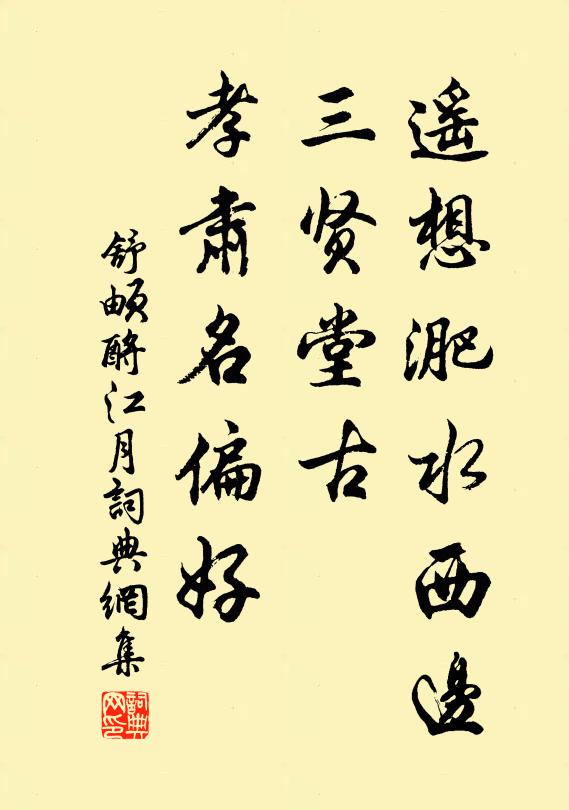 遥想淝水西邊
三贤堂古
孝肅名偏好
舒頔酹江月詞典網集
詞典网印